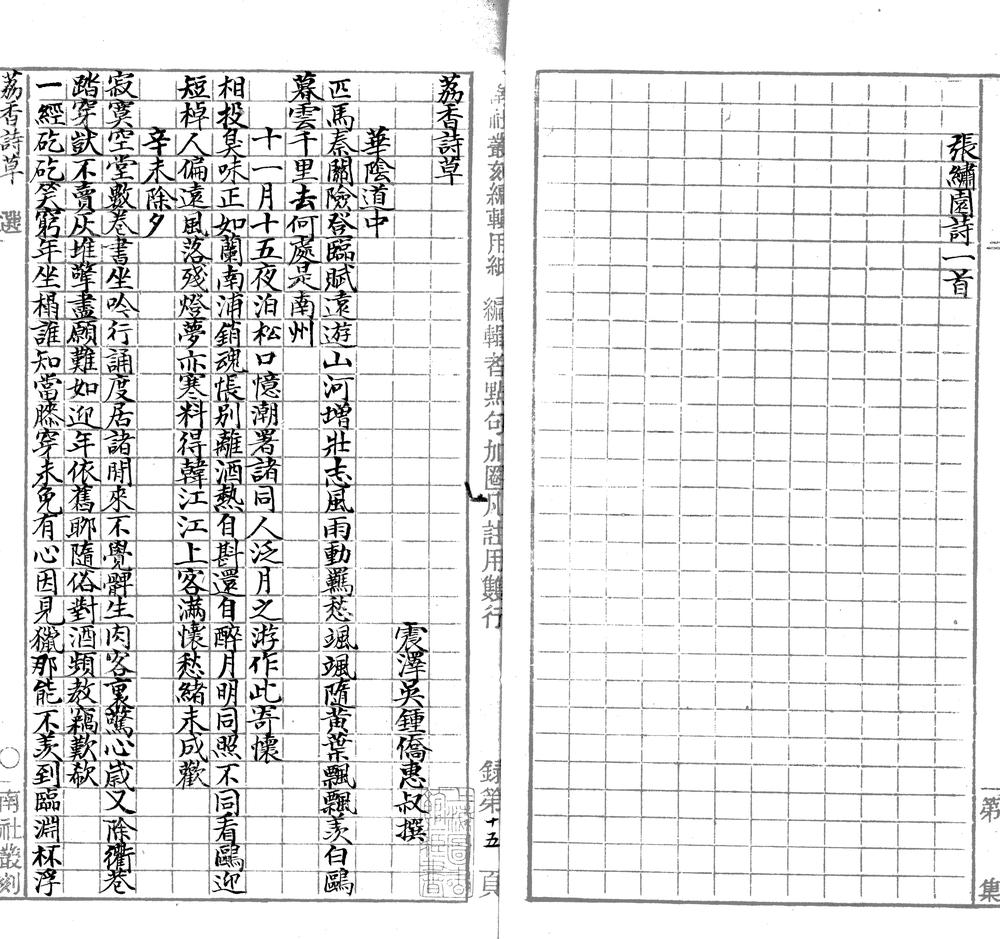 張繡園詩一首
第　集
南社叢刻編輯用紙　編輯者點句加圈凡註用雙行　錄第十五頁
荔香詩草
震澤吳鍾僑惠叔撰
華陰道中
匹馬秦關險登臨賦遠遊山河增壯志風雨動羈愁颯颯隨黃葉飄飄羨白鷗
暮雲千里去何處是南州
十一月十五夜泊松口憶潮署諸同人泛月之游作此寄懷
相投臭味正如蘭南浦銷魂悵別離酒熱自斟還自醉月明同照不同看鷗迎
短棹人偏遠風落殘燈夢亦寒料得韓江江上客滿懷愁緒未成歡
辛未除夕
寂寞空堂數卷書坐吟行誦度居諸閒來不覺髀生肉客裏驚心歲又除衢巷
踏穿獃不賣灰堆擎盡願難如迎年依舊聊隨俗對酒頻教竊歎欷
一經矻矻笑窮年坐榻誰知當膝穿未免有心因見獵那能不羨到臨淵杯浮
荔香詩草　選　〇　南社叢刻